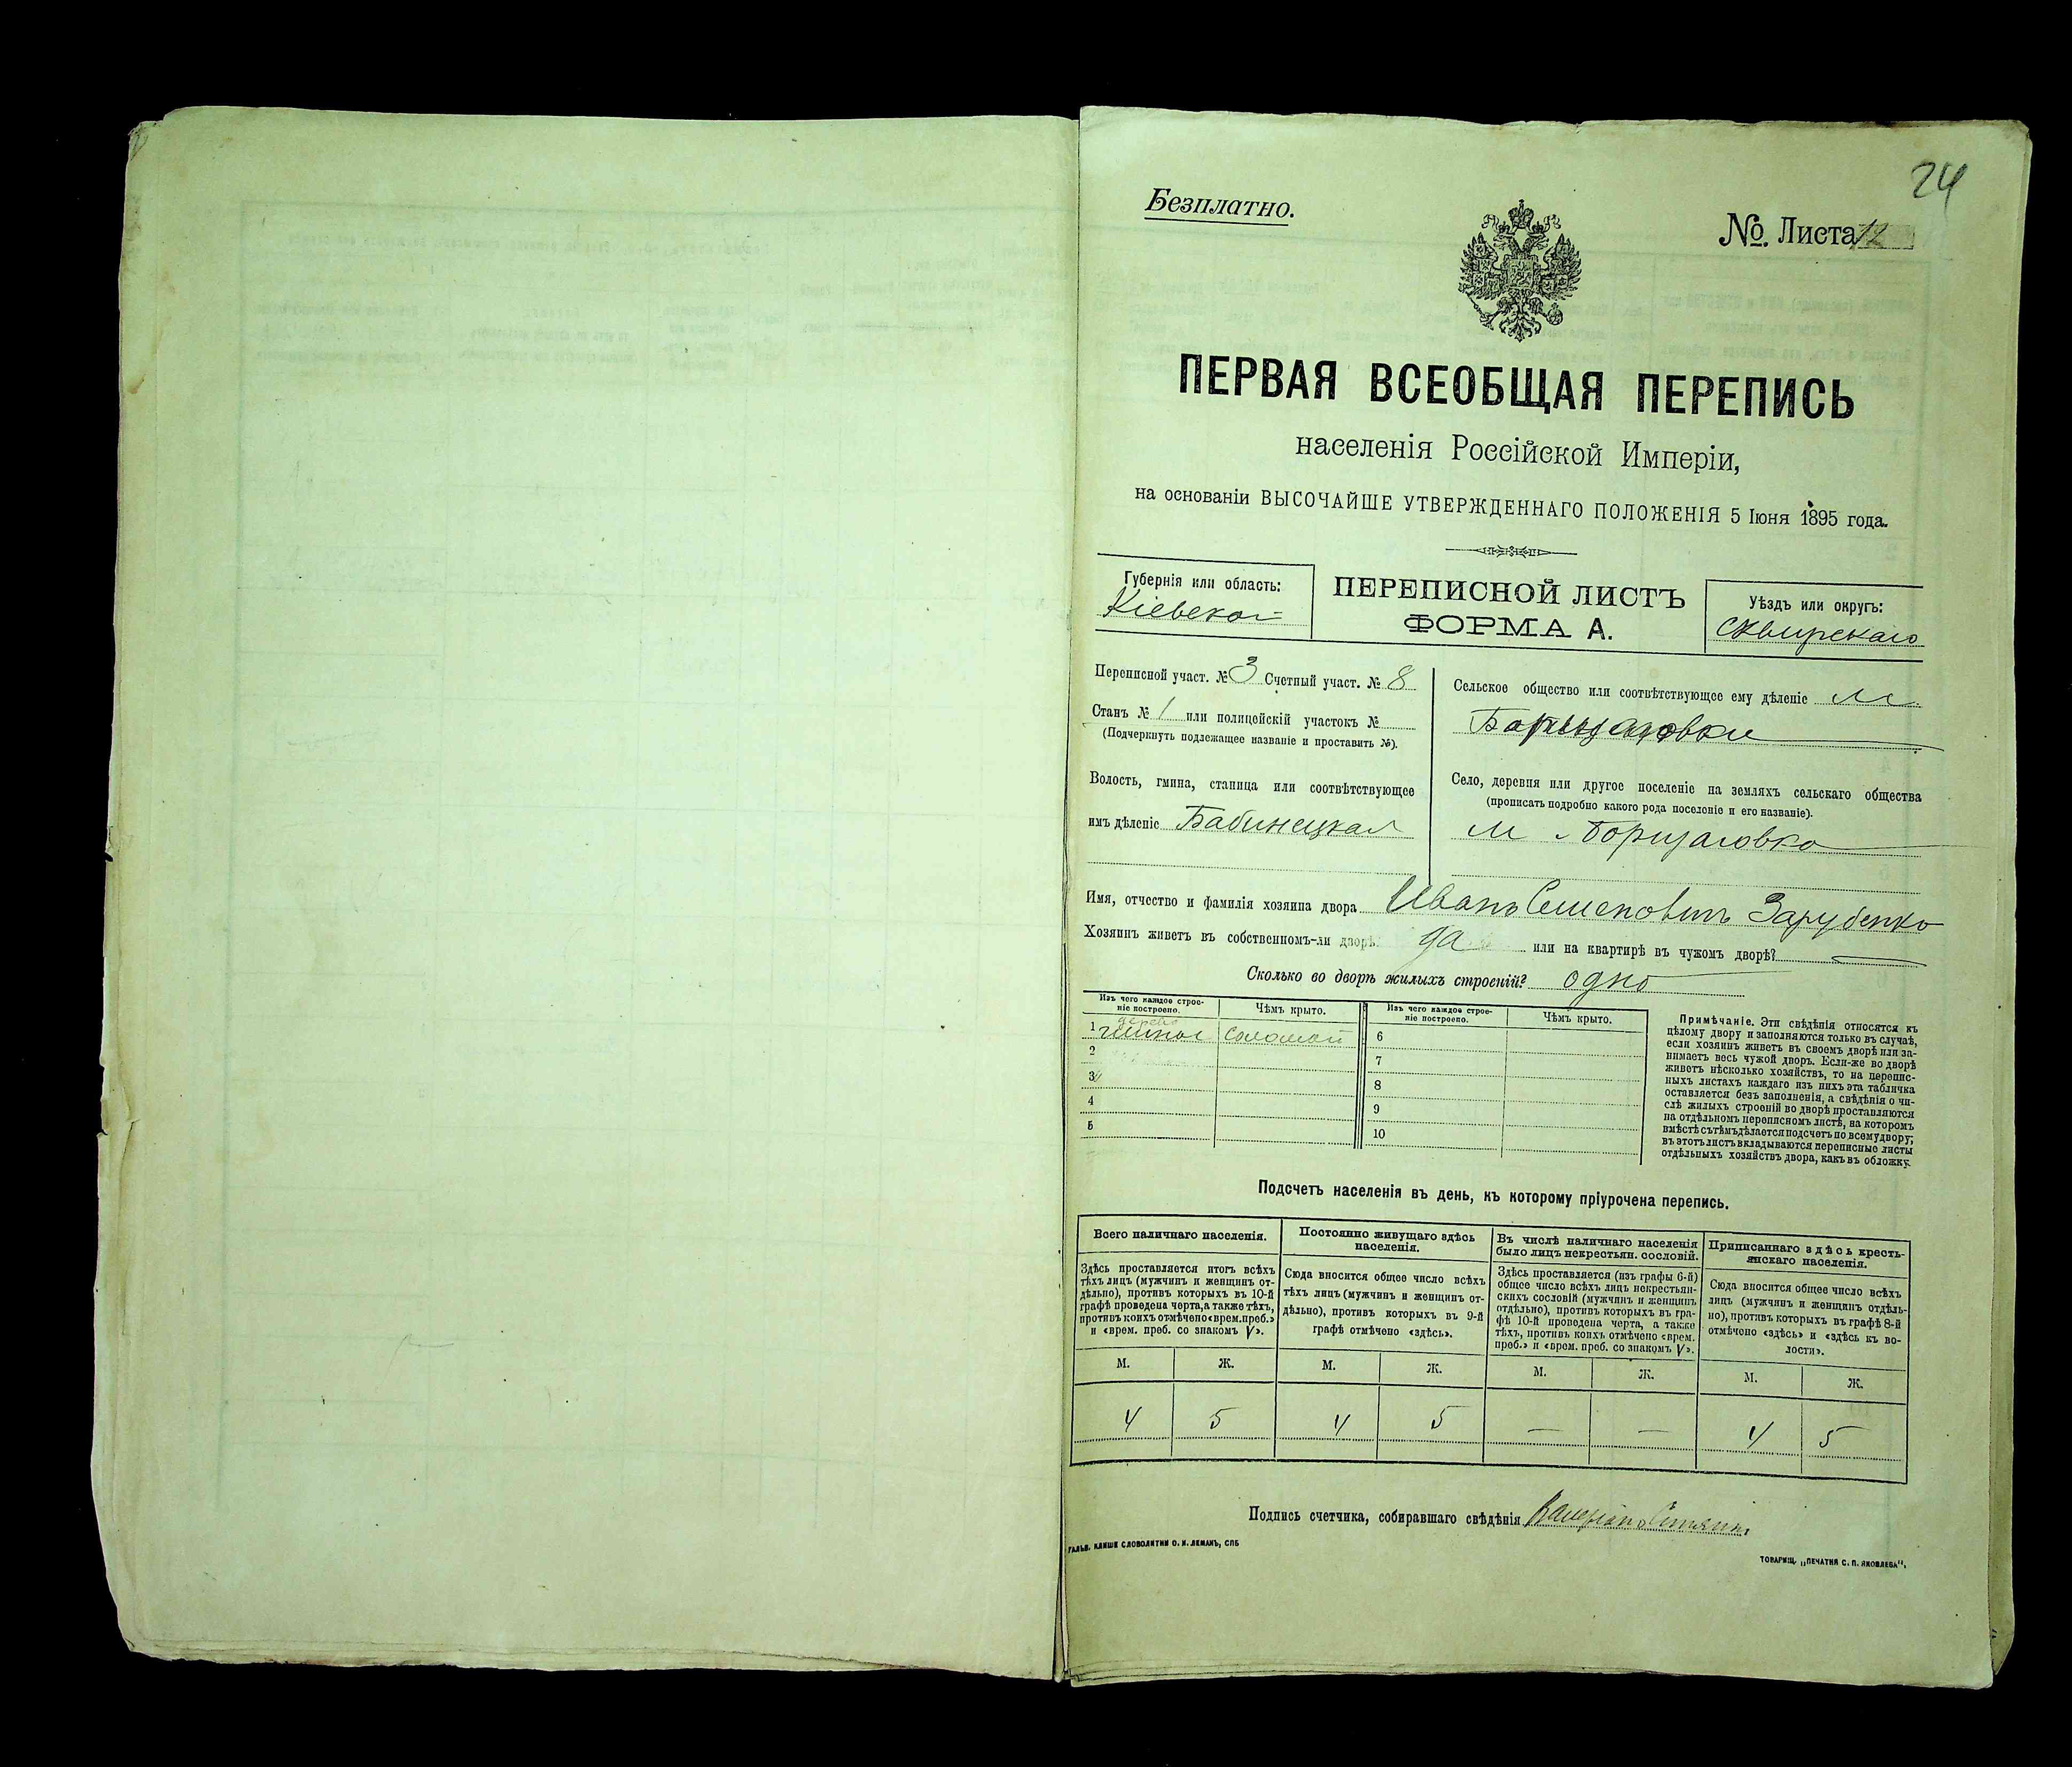 24
Безплатно.
№. Листа 12
ПЕРВАЯ ВСЕОБЩАЯ ПЕРЕПИСЬ
населенія Россійской Имперіи,
на основаніи ВЫСОЧАЙШЕ УТВЕРЖДЕННАГО ПОЛОЖЕНІЯ 5 Іюня 1895 года.
Губернія или область:
Кіевской
ПЕРЕПИСНОЙ ЛИСТЪ
ФОРМА А.
Уѣздъ или округъ:
Сквирскаго
Переписной участ. № 3 Счетный участ. № 8
Станъ № 1 или полицейскій участокъ №
(Подчеркнуть подлежащее названіе и проставить №).
Волость, гмина, станица или соотвѣтствующее
имъ дѣленіе Бабинецкая
Сельское общество или соотвѣтствующее ему дѣленіе м
Борщаговки
Село, деревня или другое поселеніе на земляхъ сельскаго общества
(прописать подробно какого рода поселеніе и его названіе).
м Борщаговка
Имя, отчество и фамилія хозяина двора Иванъ Семеновичъ Зарубенко
Хозяинъ живетъ въ собственномъ-ли дворѣ да или на квартирѣ въ чужомъ дворѣ? —
Сколько во дворѣ жилыхъ строеній? одно
Изъ чего каждое строе-
ніе построено.
Чѣмъ крыто.
Изъ чего каждое строе-
ніе построено.
Чѣмъ крыто.
дерево
1 соломой 6
2 7
3 8
4 9
5 10
Примѣчаніе. Эти свѣдѣнія относятся къ
цѣлому двору и заполняются только въ случаѣ,
если хозяинъ живетъ въ своемъ дворѣ или за-
нимаетъ весь чужой дворъ. Если-же во дворѣ
живетъ нѣсколько хозяйствъ, то на перепис-
ныхъ листахъ каждаго изъ нихъ эта табличка
оставляется безъ заполненія, а свѣдѣнія о чи-
слѣ жилыхъ строеній во дворѣ проставляются
на отдѣльномъ переписномъ листѣ, на которомъ
вмѣстѣ съ тѣмъ дѣлается подсчетъ по всему двору;
въ этотъ листъ вкладываются переписные листы
отдѣльныхъ хозяйствъ двора, какъ въ обложку.
Подсчетъ населенія въ день, къ которому пріурочена перепись.
Всего наличнаго населенія.
Здѣсь проставляется итогъ всѣхъ
тѣхъ лицъ (мужчинъ и женщинъ от-
дѣльно), противъ которыхъ въ 10-й
графѣ проведена черта, а также тѣхъ,
противъ коихъ отмѣчено «врем. преб.»
и «врем. преб. со знакомъ V».
Постоянно живущаго здѣсь
населенія.
Сюда вносится общее число всѣхъ
тѣхъ лицъ (мужчинъ и женщинъ от-
дѣльно), противъ которыхъ въ 9-й
графѣ отмѣчено «здѣсь».
Въ числѣ наличнаго населенія
было лицъ некрестьян. сословій.
Здѣсь проставляется (изъ графы 6-й)
общее число всѣхъ лицъ некрестьян-
скихъ сословій (мужчинъ и женщинъ
отдѣльно), противъ которыхъ въ гра-
фѣ 10-й проведена черта, а также
тѣхъ, противъ коихъ отмѣчено «врем.
преб.» и «врем. преб. со знакомъ V».
Приписаннаго здѣсь кресть-
янскаго населенія.
Сюда вносится общее число всѣхъ
лицъ (мужчинъ и женщинъ отдѣль-
но), противъ которыхъ въ графѣ 8-й
отмѣчено «здѣсь» и «здѣсь къ во-
лости».
М. Ж. М. Ж. М. Ж. М. Ж.
4 5 4 5 — — 4 5
Подпись счетчика, собиравшаго свѣдѣнія
ГАЛЬВ. КЛИШЕ СЛОВОЛИТНИ О. И. ЛЕМАНЪ, СПБ
ТОВАРИЩ. „ПЕЧАТНЯ С. П. ЯКОВЛЕВА“.